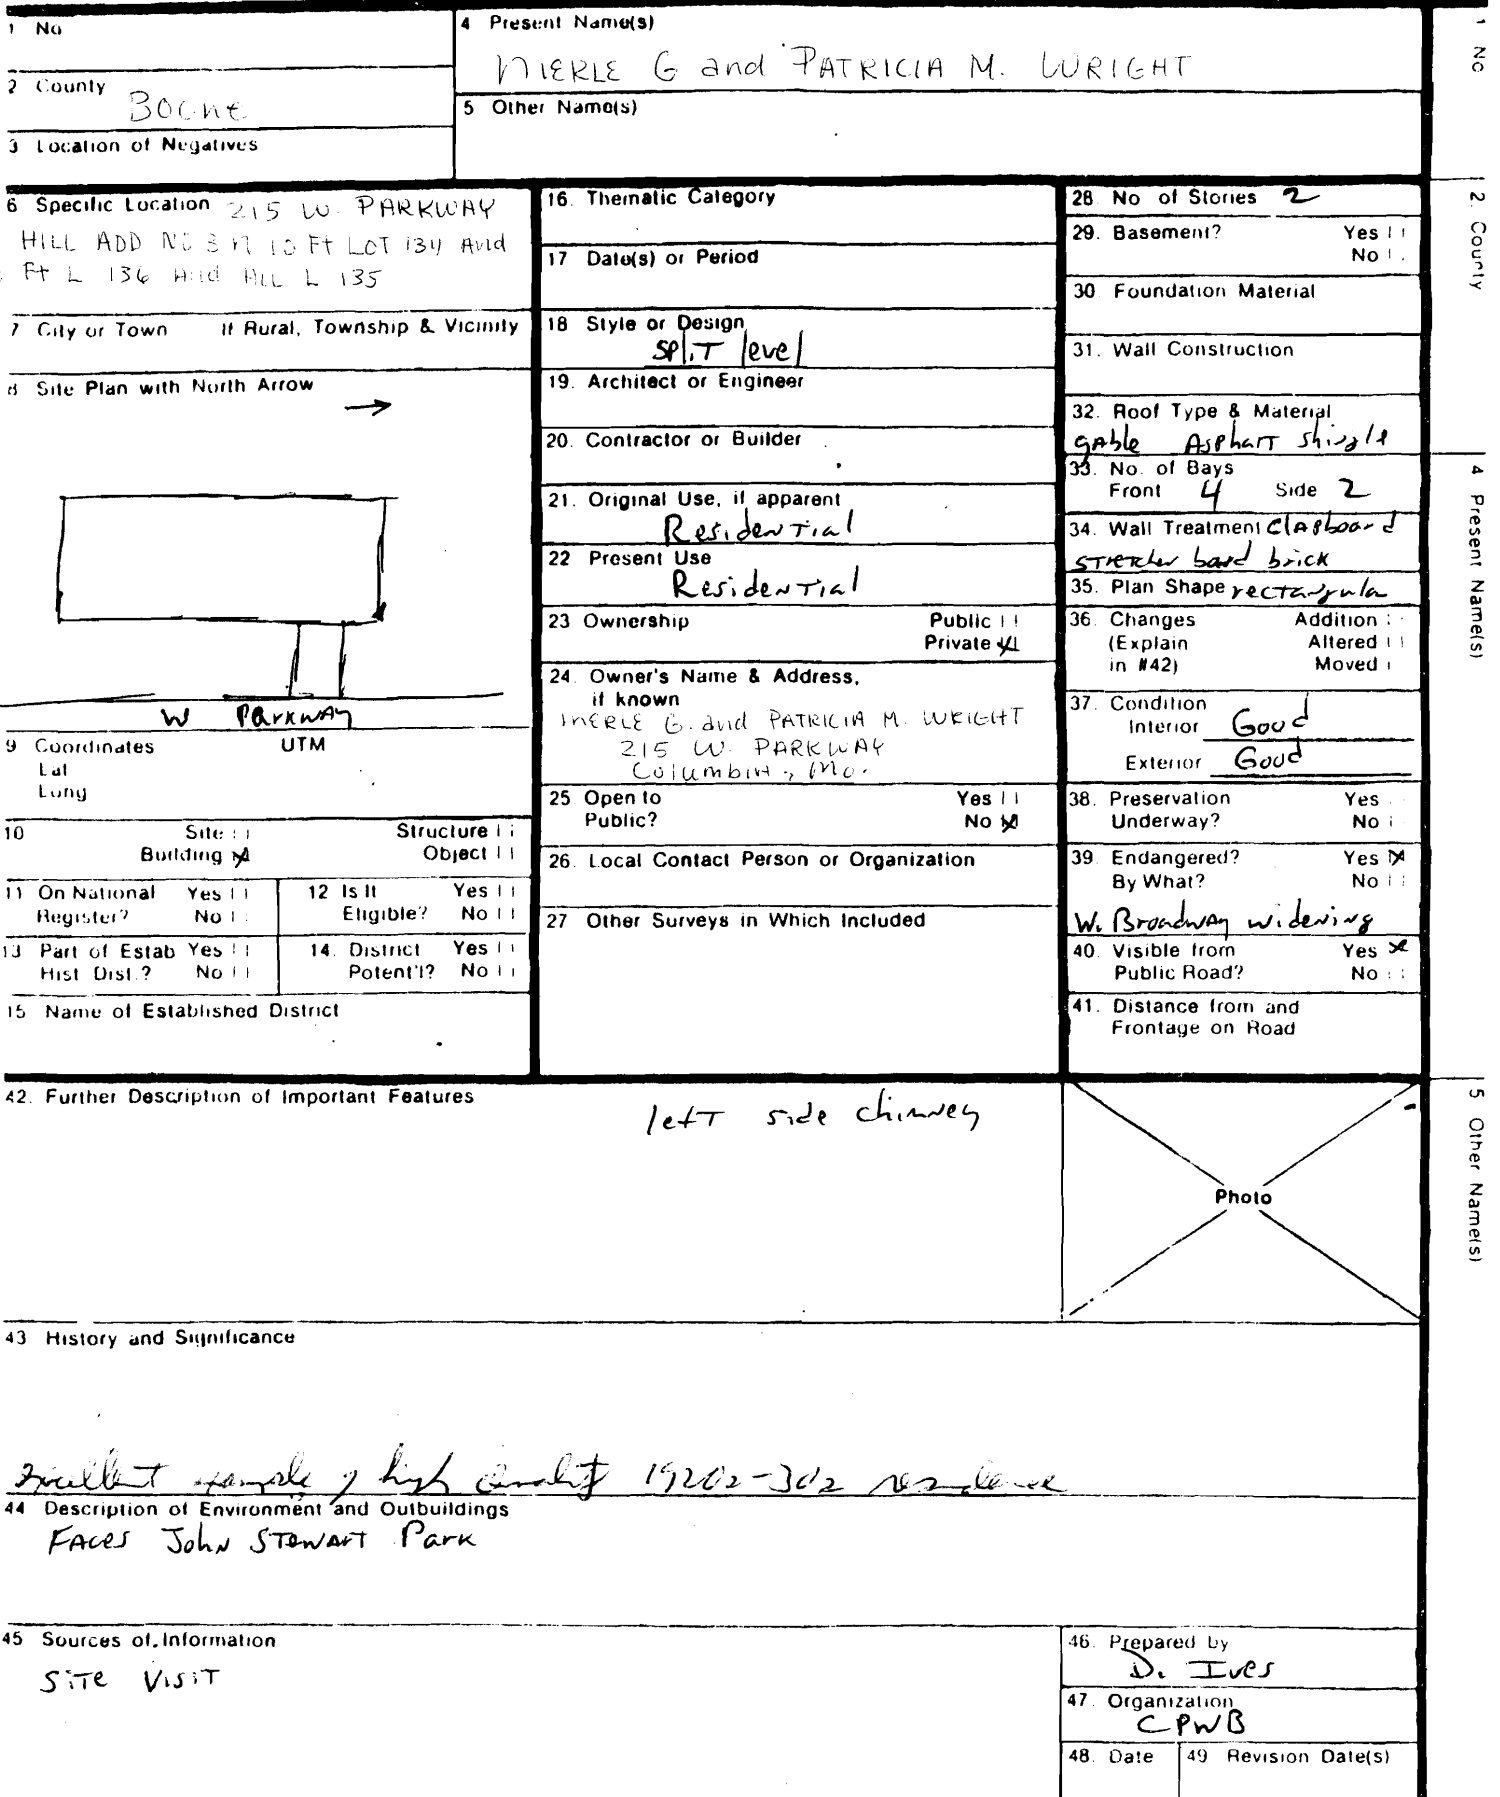 1 No
4 Present Name(s)
MERLE G and PATRICIA M. WRIGHT
2 County
Boone
5 Other Name(s)
3 Location of Negatives
6 Specific Location 215 W. PARKWAY
HILL ADD NO 3 N 10 Ft LOT 134 And
Ft L 136 And ALL L 135
7 City or Town If Rural, Township & Vicinity
8 Site Plan with North Arrow
W Parkway
9 Coordinates UTM
Lat
Long
10 Site Structure
Building Object
11 On National Register? Yes No
12 Is It Eligible? Yes No
13 Part of Estab Hist Dist.? Yes No
14. District Potent'l? Yes No
15 Name of Established District
16. Thematic Category
17 Date(s) or Period
18 Style or Design
split level
19. Architect or Engineer
20. Contractor or Builder
21. Original Use, if apparent
Residential
22 Present Use
Residential
23 Ownership Public
Private X
24. Owner's Name & Address,
if known
MERLE G. and PATRICIA M. WRIGHT
215 W. PARKWAY
Columbia, Mo.
25 Open to Yes
Public? No X
26. Local Contact Person or Organization
27 Other Surveys in Which Included
28. No of Stories 2
29. Basement? Yes
No
30 Foundation Material
31. Wall Construction
32. Roof Type & Material
gable Asphalt shingle
33. No. of Bays
Front 4 Side 2
34. Wall Treatment Clapboard
stretcher bond brick
35. Plan Shape rectangula
36. Changes Addition
(Explain Altered
in #42) Moved
37. Condition
Interior Good
Exterior Good
38. Preservation Yes
Underway? No
39. Endangered? Yes X
By What? No
W. Broadway widening
40. Visible from Yes X
Public Road? No
41. Distance from and
Frontage on Road
42. Further Description of Important Features
left side chimney
Photo
43 History and Significance
Excellent example of high quality 1920s-30s residence
44 Description of Environment and Outbuildings
Faces John Stewart Park
45 Sources of Information
Site Visit
46. Prepared by
D. Ives
47. Organization
CPWB
48. Date 49 Revision Date(s)
1 No
2. County
4 Present Name(s)
5 Other Name(s)